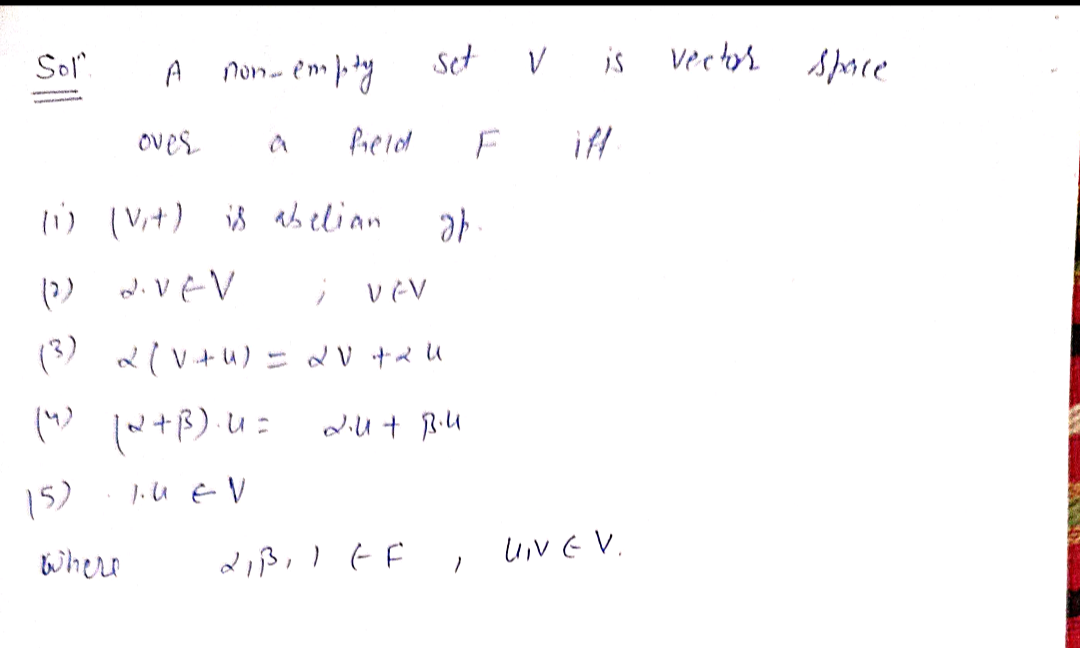 Solⁿ. A non-empty set V is vector space
over a field F iff.
(i) (V,+) is abelian gp.
(2) α.v ∈ V ; v ∈ V
(3) α(v+u) = αv + αu
(4) (α+β).u = α.u + β.u
(5) 1.u ∈ V
where α,β,1 ∈ F , u,v ∈ V.